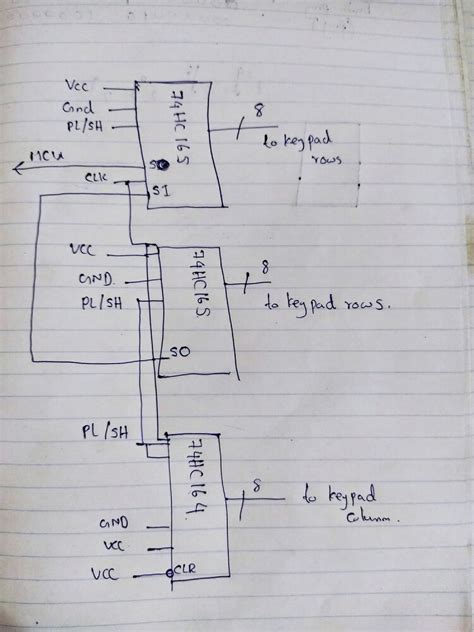 Vcc
Gnd
PL/SH
74HC165
8
to keypad
rows
MCU
SO
CLK
SI
VCC
GND.
PL/SH
74HC165
8
to keypad rows.
SO
PL/SH
74HC164
8
to keypad
column.
GND
VCC
VCC
CLR